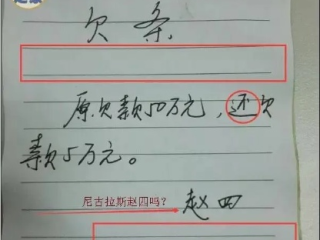 欠条
原欠款50万元,还欠
款5万元。
尼古拉斯赵四吗?
赵四